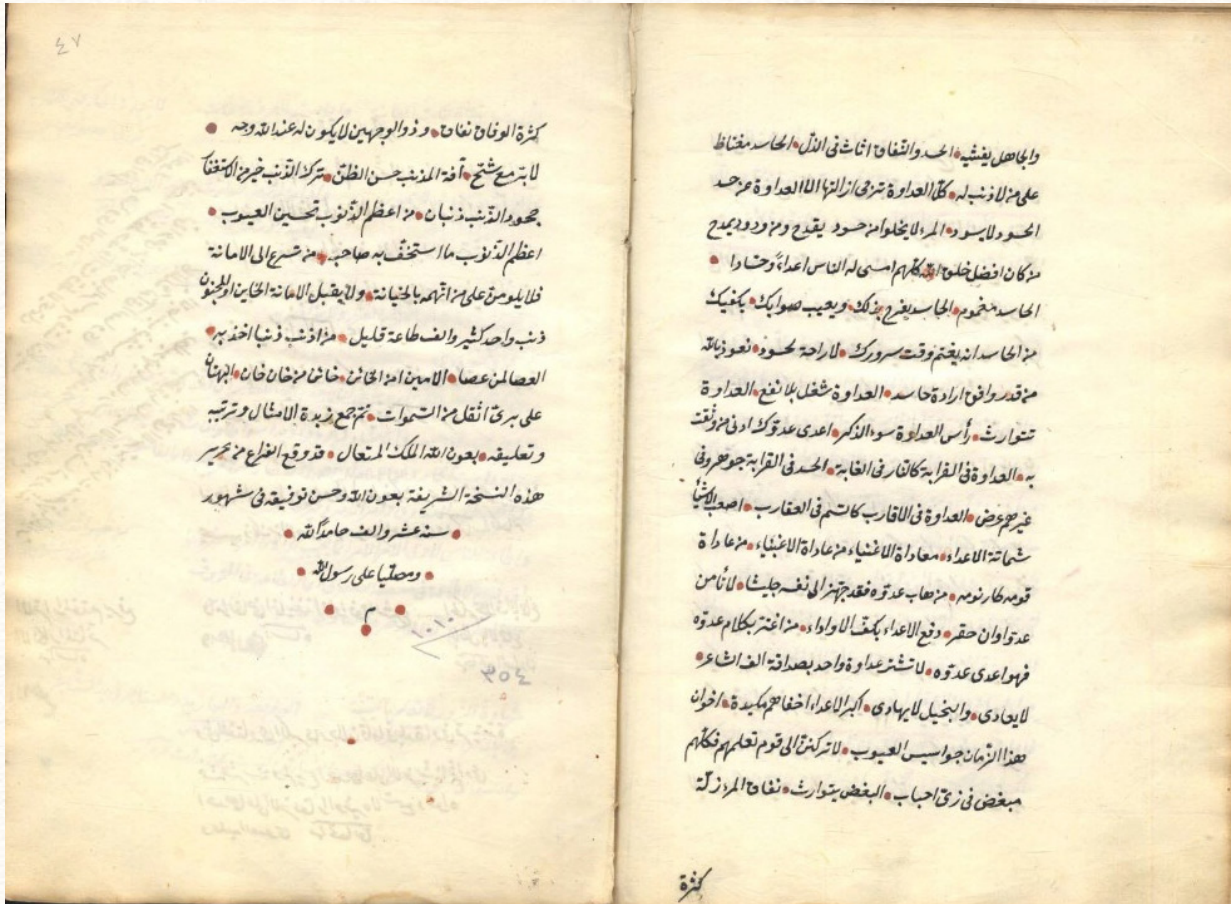 والجاهل يفشيه • الحسد والنفاق اثاث فى الذل • الحاسد مغتاظ
على من لا ذنب له • كل العداوة ترجى ازالتها الا العداوة عن حسد
الحسود لا يسود • المرء لا يخلوا من حسود يقدح ومن ودود يمدح
من كان افضل خلق الله كلهم امسى له الناس اعداءً وحسادا •
الحاسد مغموم • الحاسد يفرح بذلك • ويعيب صوابك • يكفيك
من الحاسد انه يغتم وقت سرورك • لا راحة لحسود • نعوذ بالله
من قدر وافق ارادة حاسد • العداوة شغل بلا نفع • العداوة
تتوارث • رأس العداوة سوء الذكر • اعدى عدوك ادنى من وثقت
به • العداوة فى القرابة كالنار فى الغابة • الحسد فى القرابة جوهر وفى
غيرهم عرض • العداوة فى الاقارب كالسم فى العقارب • اصعب الاشياء
شماتة الاعداء • معاداة الاغنياء من عاداة الاغبياء • من عاداة
قومه طار نومه • من هاب عدوه فقد جهز الى نفسه جليشا • لا تأمن
عدوا وان حقر • دفع الاعداء بكف الاوداء • من اغتر بكلام عدوه
فهو اعدى عدوه • لا تشتر عداوة واحد بصداقة الف الشاعر •
لا يعادى • والبخيل لا يهادى • اكبر الاعداء اخفاهم مكيدة • اخوان
هذا الزمان جواسيس العيوب • لا تركنن الى قوم تعلمهم فكلهم
مبغض فى زى احباب • البغض يتوارث • نفاق المرء زلة
كثرة
٤٧
كثرة الوفاق نفاق • وذو الوجهين لا يكون له عند الله وجه •
لا بر مع شح • آفة المذنب حسن الظن • ترك الذنب خير من الاستغفار
جحود الذنب ذنبان • من اعظم الذنوب تحسين العيوب •
اعظم الذنوب ما استخف به صاحبه • من تسرع الى الامانة
فلا يلومن على من اتهمه بالخيانة • ولا يقبل الامانة الخاين او المجنون
ذنب واحد كثير والف طاعة قليل • من اذنب ذنبا اخذ به •
العصا لمن عصا • الامين امن الخائن • خائن من خان خان • البهتان
على برئ اثقل من السموات • تم جمع زبدة الامثال وترتيبه
وتعليقه • بعون الله الملك المتعال • قد وقع الفراغ من تحرير
هذه النسخة الشريفة بعون الله وحسن توفيقه فى شهور
• سنة عشر والف حامدا لله •
• ومصليا على رسول الله •
• م •
١٠١٠